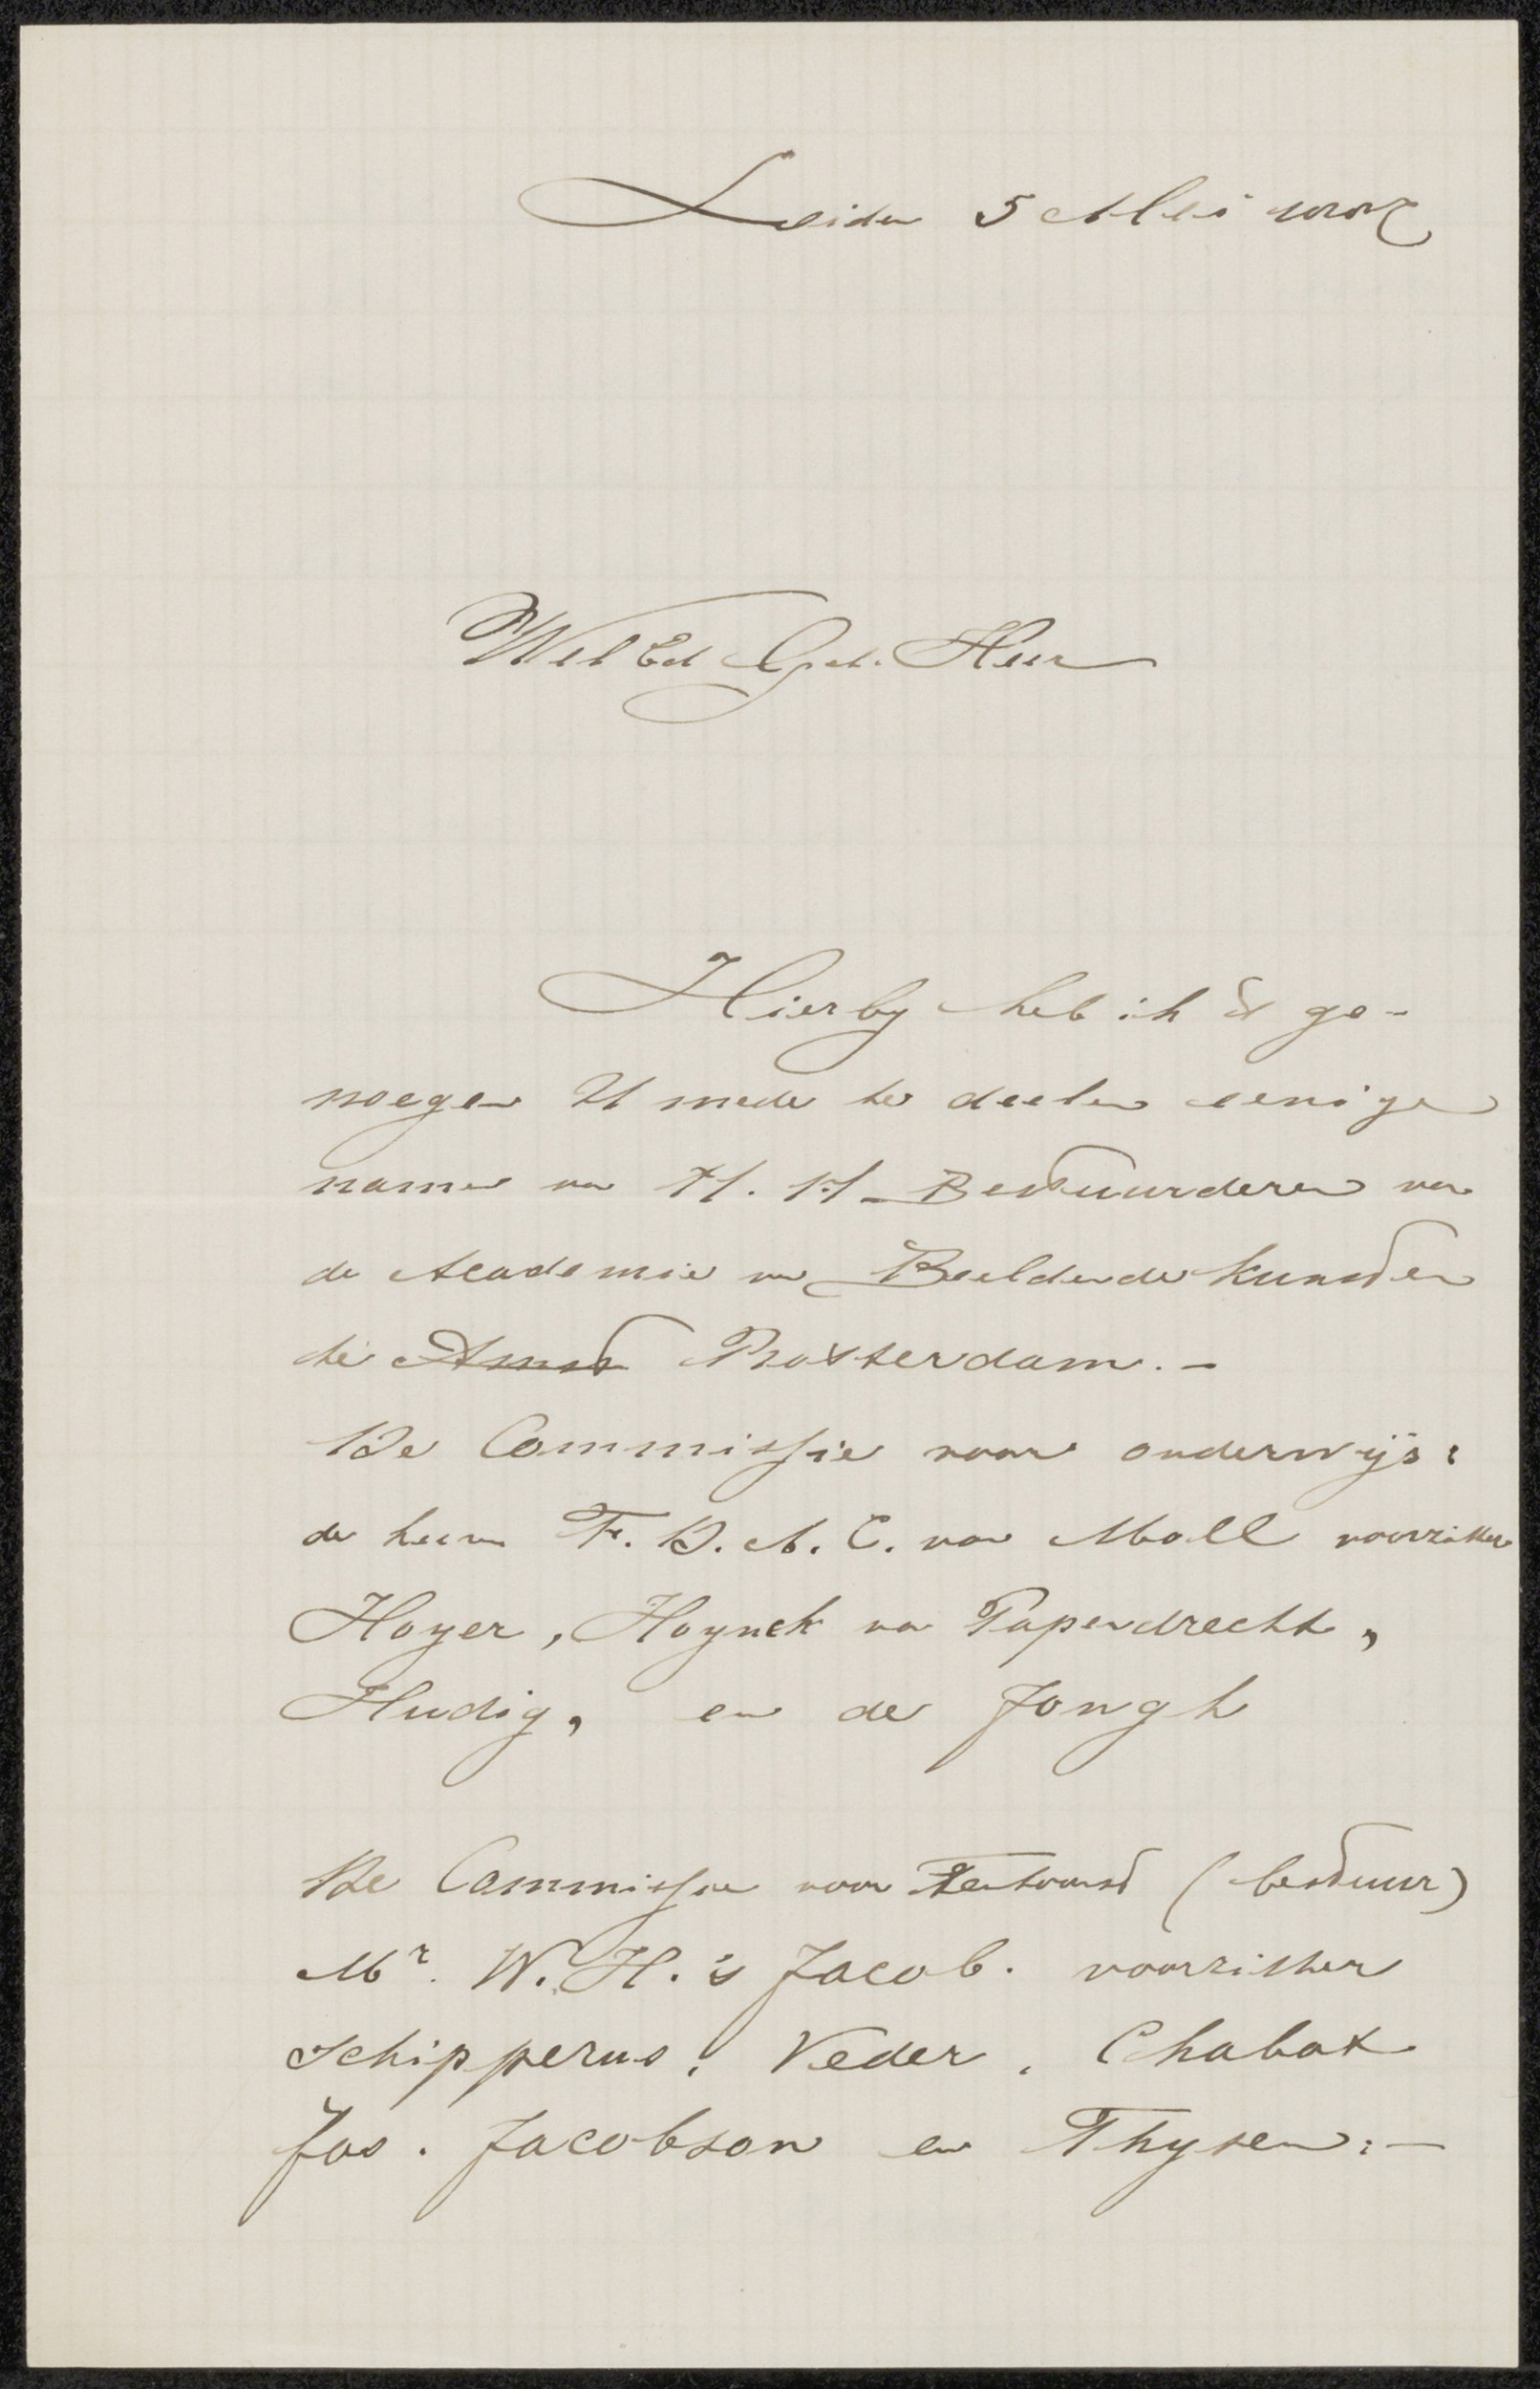 Leiden 5 Mei
Wel Ed Geb. Heer
Hierby heb ik 't ge-
noegen U mede te deelen eenige
namen van H. H. Bestuurderen van
de Academie van Beeldende Kunsten
te Amst Rotterdam. -
De Commissie voor onderwijs:
de heeren F. D. A. C. van Moll voorzitter
Hoyer, Hoynck van Papendrecht,
Hudig, en de Jongh
De Commissie voor Tentoonst (bestuur)
Mr. W. H. 's Jacob. voorzitter
Schipperus, Veder, Chabot
Jos. Jacobson en Thysen: -